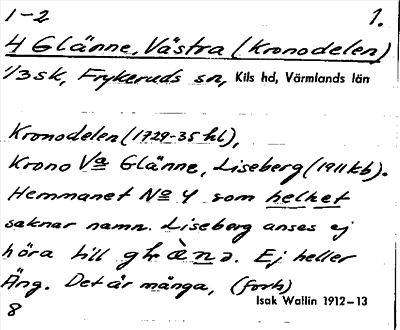 1-2 1.
4 Glänne, Västra (Kronodelen)
1/3 sk, Frykeruds sn, Kils hd, Värmlands län
Kronodelen (1729-35 hl),
Krono Va Glänne, Liseberg (1911 kb).
Hemmanet No 4 som helhet
saknar namn. Liseberg anses ej
höra till
Ej heller
Äng. Det är många, (forts)
Isak Wallin 1912-13
8